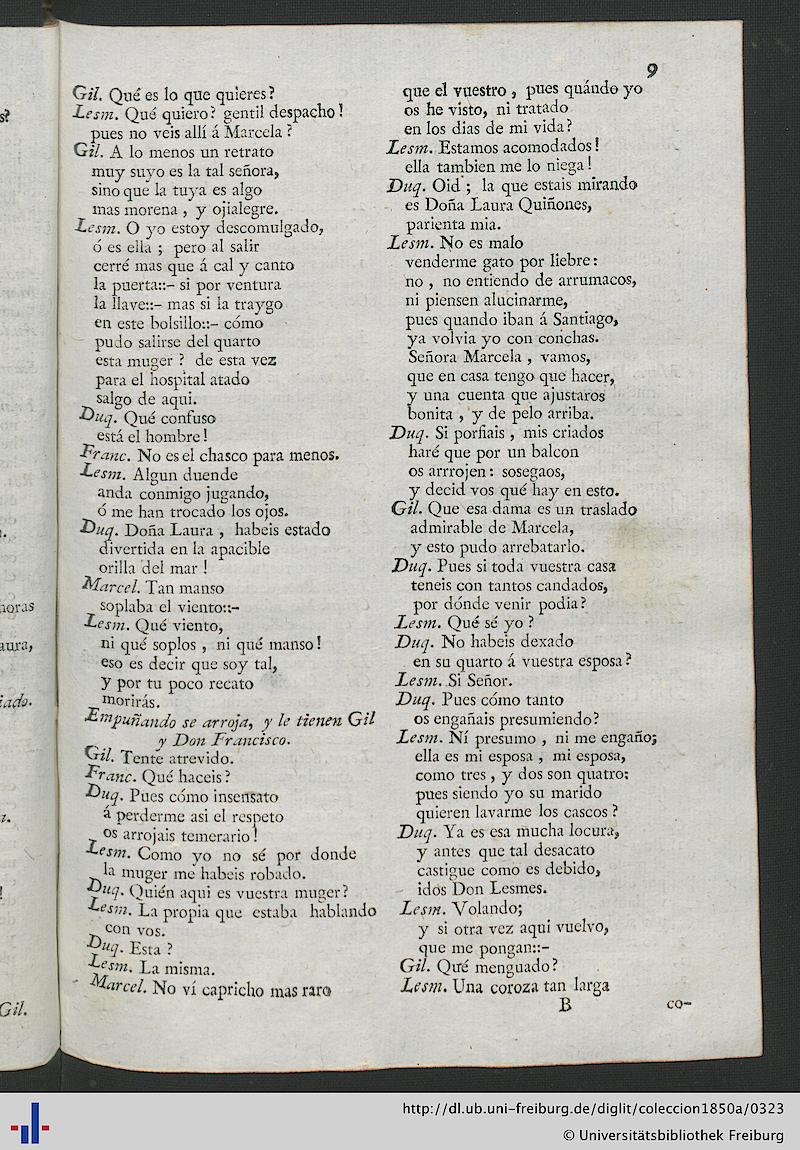 9
Gil. Qué es lo que quieres?
Lesm. Qué quiero? gentil despacho!
pues no veis allí á Marcela?
Gil. A lo menos un retrato
muy suyo es la tal señora,
sino que la tuya es algo
mas morena, y ojialegre.
Lesm. O yo estoy descomulgado,
ó es ella; pero al salir
cerré mas que á cal y canto
la puerta::- si por ventura
la llave::- mas si la traygo
en este bolsillo::- cómo
pudo salirse del quarto
esta muger? de esta vez
para el hospital atado
salgo de aqui.
Duq. Qué confuso
está el hombre!
Franc. No es el chasco para menos.
Lesm. Algun duende
anda conmigo jugando,
ó me han trocado los ojos.
Duq. Doña Laura, habeis estado
divertida en la apacible
orilla del mar!
Marcel. Tan manso
soplaba el viento::-
Lesm. Qué viento,
ni qué soplos, ni qué manso!
eso es decir que soy tal,
y por tu poco recato
morirás.
Empuñando se arroja, y le tienen Gil
y Don Francisco.
Gil. Tente atrevido.
Franc. Qué haceis?
Duq. Pues cómo insensato
á perderme asi el respeto
os arrojais temerario!
Lesm. Como yo no sé por donde
la muger me habeis robado.
Duq. Quién aqui es vuestra muger?
Lesm. La propia que estaba hablando
con vos.
Duq. Esta?
Lesm. La misma.
Marcel. No ví capricho mas raro
que el vuestro, pues quándo yo
os he visto, ni tratado
en los dias de mi vida?
Lesm. Estamos acomodados!
ella tambien me lo niega!
Duq. Oid; la que estais mirando
es Doña Laura Quiñones,
parienta mia.
Lesm. No es malo
venderme gato por liebre:
no, no entiendo de arrumacos,
ni piensen alucinarme,
pues quando iban á Santiago,
ya volvia yo con conchas.
Señora Marcela, vamos,
que en casa tengo que hacer,
y una cuenta que ajustaros
bonita, y de pelo arriba.
Duq. Si porfiais, mis criados
haré que por un balcon
os arrrojen: sosegaos,
y decid vos qué hay en esto.
Gil. Que esa dama es un traslado
admirable de Marcela,
y esto pudo arrebatarlo.
Duq. Pues si toda vuestra casa
teneis con tantos candados,
por dónde venir podia?
Lesm. Qué sé yo?
Duq. No habeis dexado
en su quarto á vuestra esposa?
Lesm. Si Señor.
Duq. Pues cómo tanto
os engañais presumiendo?
Lesm. Ní presumo, ni me engaño;
ella es mi esposa, mi esposa,
como tres, y dos son quatro:
pues siendo yo su marido
quieren lavarme los cascos?
Duq. Ya es esa mucha locura,
y antes que tal desacato
castigue como es debido,
idos Don Lesmes.
Lesm. Volando;
y si otra vez aqui vuelvo,
que me pongan::-
Gil. Qué menguado?
Lesm. Una coroza tan larga
B
co-
s?
noras
aura,
iado.
Gil.
http://dl.ub.uni-freiburg.de/diglit/coleccion1850a/0323
© Universitätsbibliothek Freiburg